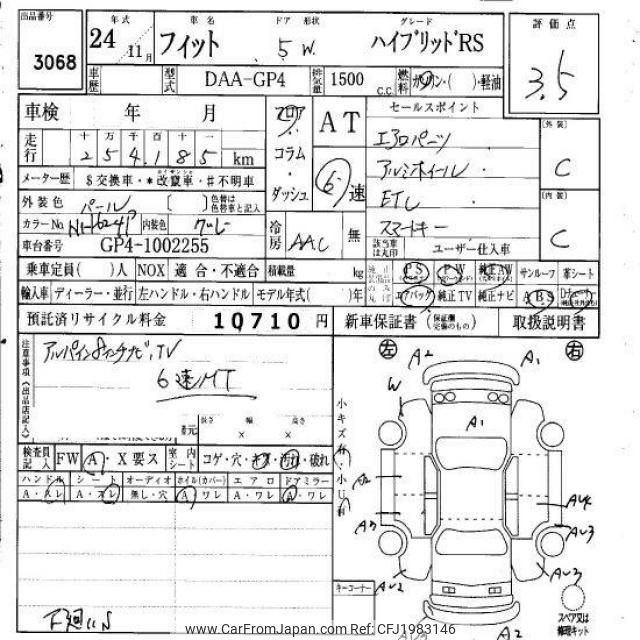 出品番号 年式 車名 ドア 形状 グレード 評価点
3068 24 11月 フィット 5 W. ハイブリッドRS 3.5
車歴 型式 DAA-GP4 排気量 1500 C.C. 燃料 ガソリン・( )・軽油
車検 年 月 フロア AT セールスポイント
走行 十 万 千 百 十 一 コラム エアロパーツ [外装]
2 5 4 1 8 5 km アルミホイール C
メーター歴 $交換車・*改竄車・#不明車 ダッシュ 6速 ETC [内装]
外装色 パール ( ) 色替は色替車と記入 スマートキー C
カラーNo. NH624P 内装色 グレー 冷房 AAC 無 該当車は丸印 ユーザー仕入車
車台番号 GP4-1002255
乗車定員( )人 NOX 適合・不適合 積載量 kg PS PW 純正AW サンルーフ 革シート
輸入車 ディーラー・並行 左ハンドル・右ハンドル モデル年式( )年 エアバック 純正TV 純正ナビ ABS
預託済リサイクル料金 10710円 新車保証書 (保証継続のもの) 取扱説明書
注意事項(出品店記入) アルパイン8インチナビ,TV
6速MT
長さ 幅 高さ
× ×
検査員記入 FW A・X要ス 室内シート コゲ・穴・キズ・汚れ・破れ
ハンドル シート オーディオ ホイル(カバー) エアロ ドアミラー
A・スレ A・スレ 無し・穴 A・ワレ A・ワレ A・ワレ
下廻りS
左 右
A2 A1
W A1
小キズ有・小U有
A2 AU4
A3 AU3
AU2 AU3
A2
キーコーナー
スペア又は修理キット
www.CarFromJapan.com Ref: CFJ1983146